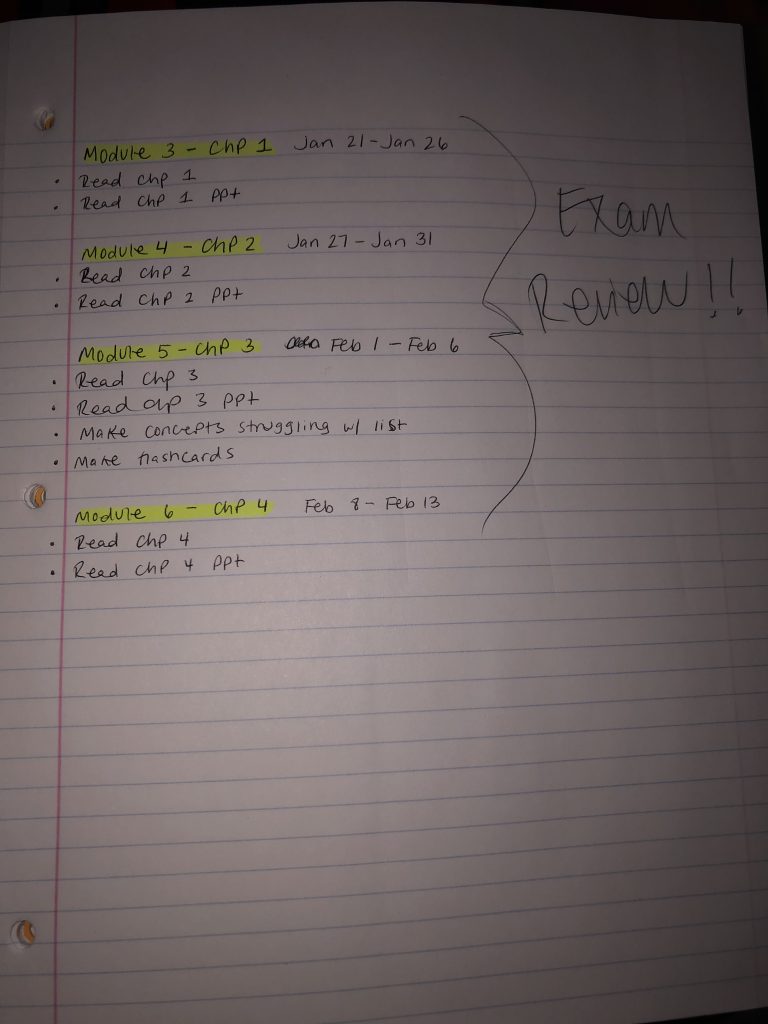 Module 3 - Chp 1 Jan 21 - Jan 26
• Read Chp 1
• Read Chp 1 ppt
Module 4 - Chp 2 Jan 27 - Jan 31
• Read Chp 2
• Read Chp 2 ppt
Module 5 - Chp 3 Feb 1 - Feb 6
• Read Chp 3
• Read Chp 3 ppt
• Make concepts struggling w/ list
• Make flashcards
Module 6 - Chp 4 Feb 8 - Feb 13
• Read Chp 4
• Read Chp 4 ppt
Exam
Review!!